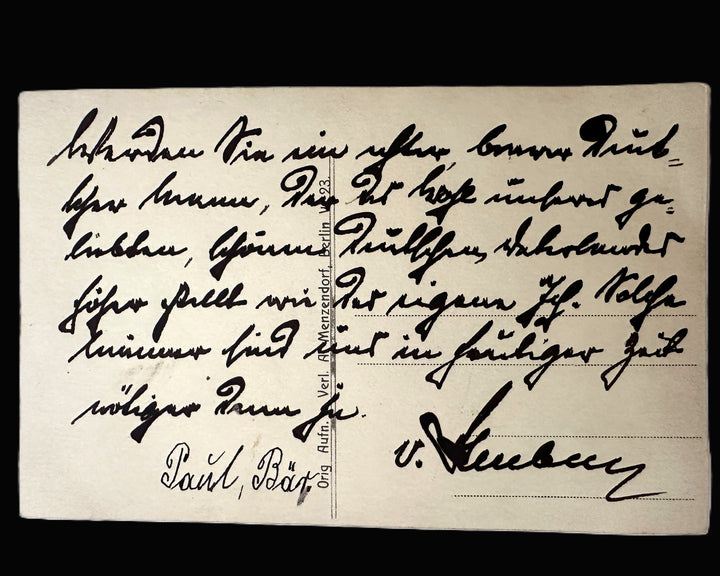 Werden Sie ein echter, braver Deut=
scher Mann, der das Wohl unseres ge=
liebten, schönen Deutschen Vaterlandes
höher stellt wie das eigene Ich. Solche
Männer sind uns in heutiger Zeit
nötiger denn je.
v.
Paul, Bär.
Orig. Aufn. Verl. A. Menzendorf, Berlin W. 23.